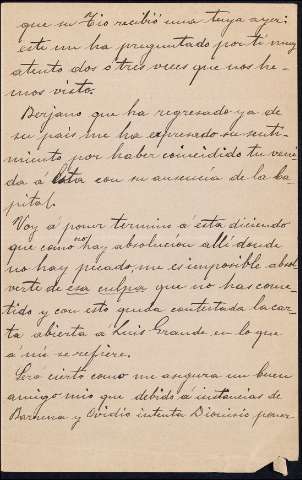 que su Tio recibió una tuya ayer;
este me ha preguntado por tí muy
atento dos ó tres veces que nos he-
mos visto.
Berjano que ha regresado ya de
su pais me ha expresado su senti-
miento por haber coincidido tu veni-
da á esta con su ausencia de la ca-
pital.
Voy á poner termino á esta diciendo
que como no hay absolucion allí donde
no hay pecado, me es imposible absol-
verte de esa culpa que no has come-
tido y con esto queda contestada la car-
ta abierta á Luis Grande en lo que
á mi se refiere.
Será cierto como me asegura un buen
amigo mio que debido á instancias de
Barrena y Ovidio intenta Dionisio poner